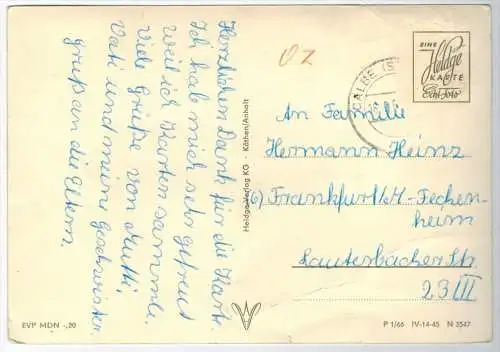 Herzlichen Dank für die Karte.
Ich habe mich sehr gefreut
weil ich Karten sammle.
Viele Grüße von Mutti,
Vati und meine Geschwister.
Gruß an die Eltern.
Heldge-Verlag KG - Köthen/Anhalt
OZ
CALBE (S
EINE
Heldge
KARTE
Echt Foto
An Familie
Hermann Heinz
(6) Frankfurt/M-Fechen-
heim
Lauterbacher Str.
23 III
EVP MDN -,20
P 1/66 IV-14-45 N 3547